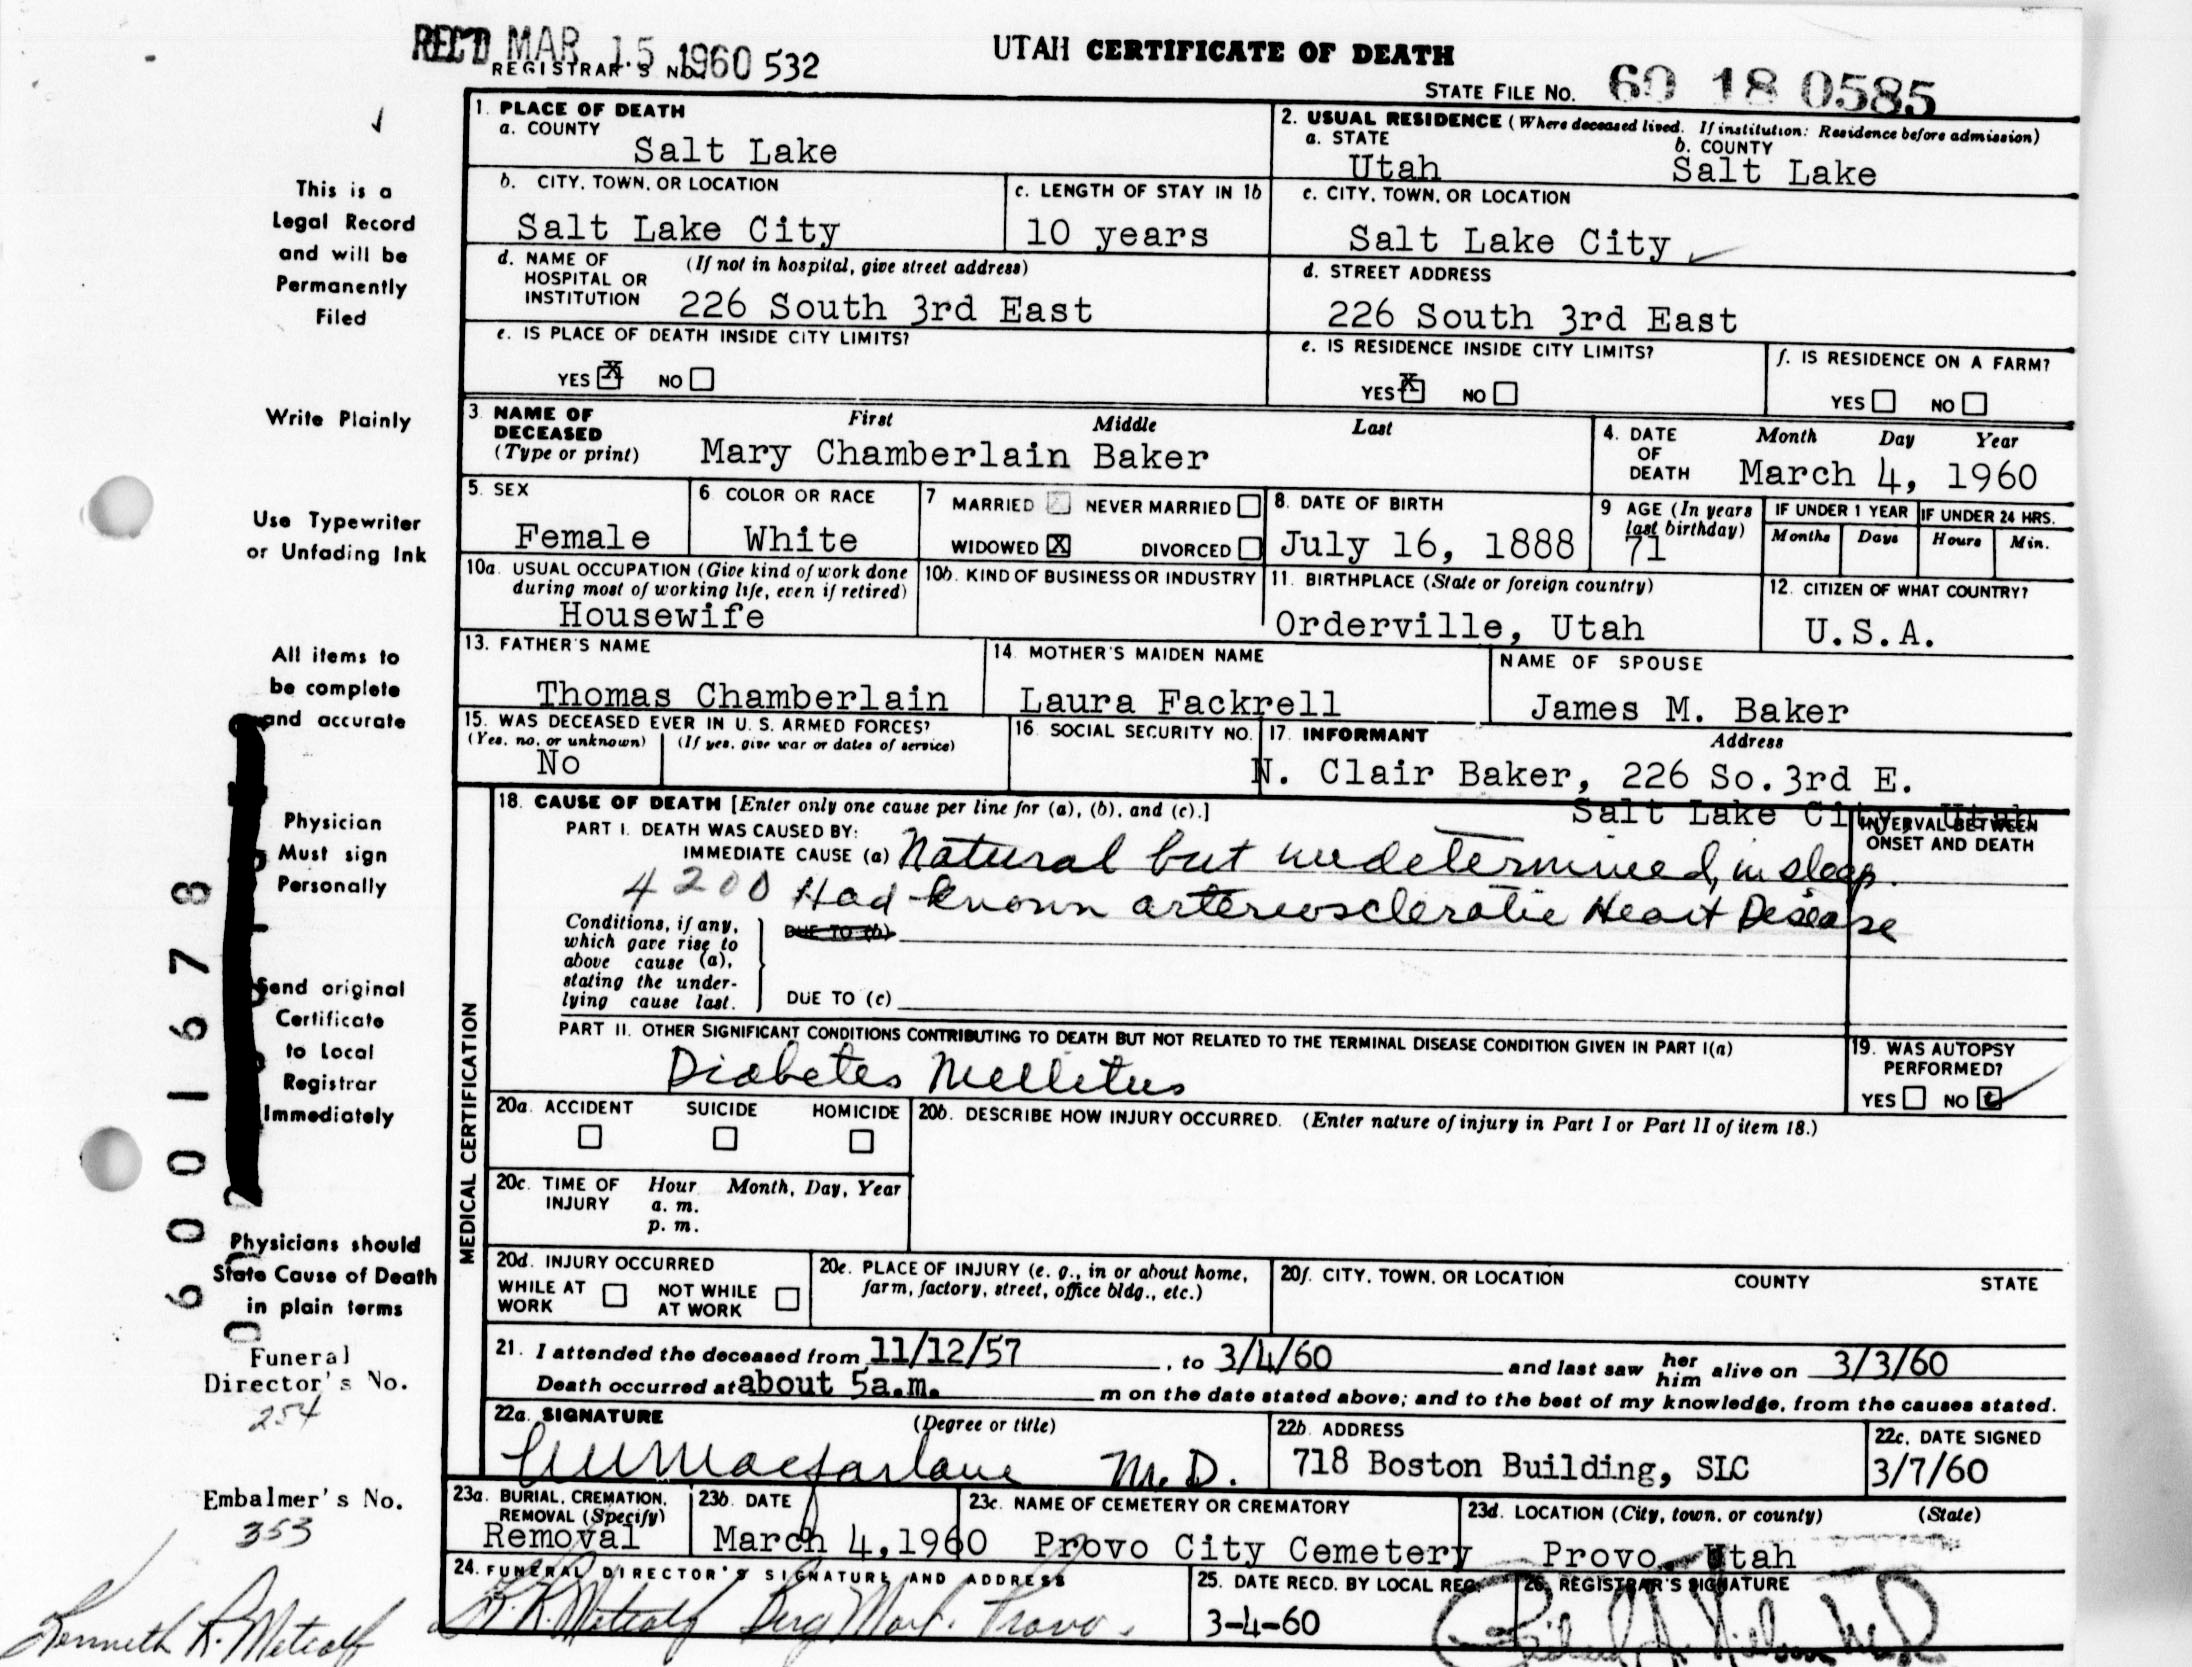 REC'D MAR 15 1960
REGISTRAR'S No. 532
UTAH CERTIFICATE OF DEATH
STATE FILE NO. 60 18 0585
This is a
Legal Record
and will be
Permanently
Filed
Write Plainly
Use Typewriter
or Unfading Ink
All items to
be complete
and accurate
Physician
Must sign
Personally
Send original
Certificate
to Local
Registrar
Immediately
Physicians should
State Cause of Death
in plain terms
Funeral
Director's No.
254
Embalmer's No.
353
Kenneth R. Metcalf
6001678
1. PLACE OF DEATH
a. COUNTY
Salt Lake
2. USUAL RESIDENCE (Where deceased lived. If institution: Residence before admission)
a. STATE
Utah
b. COUNTY
Salt Lake
b. CITY, TOWN, OR LOCATION
Salt Lake City
c. LENGTH OF STAY IN 1b
10 years
c. CITY, TOWN, OR LOCATION
Salt Lake City
d. NAME OF HOSPITAL OR INSTITUTION
(If not in hospital, give street address)
226 South 3rd East
d. STREET ADDRESS
226 South 3rd East
e. IS PLACE OF DEATH INSIDE CITY LIMITS?
YES X NO
e. IS RESIDENCE INSIDE CITY LIMITS?
YES X NO
f. IS RESIDENCE ON A FARM?
YES NO
3. NAME OF DECEASED
(Type or print)
First Middle Last
Mary Chamberlain Baker
4. DATE OF DEATH
Month Day Year
March 4, 1960
5. SEX
Female
6. COLOR OR RACE
White
7 MARRIED NEVER MARRIED
WIDOWED X DIVORCED
8. DATE OF BIRTH
July 16, 1888
9 AGE (In years last birthday)
71
IF UNDER 1 YEAR
Months Days
IF UNDER 24 HRS.
Hours Min.
10a. USUAL OCCUPATION (Give kind of work done during most of working life, even if retired)
Housewife
10b. KIND OF BUSINESS OR INDUSTRY
11. BIRTHPLACE (State or foreign country)
Orderville, Utah
12. CITIZEN OF WHAT COUNTRY?
U.S.A.
13. FATHER'S NAME
Thomas Chamberlain
14. MOTHER'S MAIDEN NAME
Laura Fackrell
NAME OF SPOUSE
James M. Baker
15. WAS DECEASED EVER IN U. S. ARMED FORCES?
(Yes, no, or unknown) (If yes, give war or dates of service)
No
16. SOCIAL SECURITY NO.
17. INFORMANT Address
N. Clair Baker, 226 So. 3rd E.
Salt Lake City, Utah
MEDICAL CERTIFICATION
18. CAUSE OF DEATH [Enter only one cause per line for (a), (b), and (c).]
INTERVAL BETWEEN
ONSET AND DEATH
PART I. DEATH WAS CAUSED BY:
IMMEDIATE CAUSE (a) Natural but undetermined, in sleep.
4200 Had known arteriosclerotic Heart Disease
Conditions, if any, which gave rise to above cause (a), stating the underlying cause last.
DUE TO (b)
DUE TO (c)
PART II. OTHER SIGNIFICANT CONDITIONS CONTRIBUTING TO DEATH BUT NOT RELATED TO THE TERMINAL DISEASE CONDITION GIVEN IN PART I(a)
Diabetes Mellitus
19. WAS AUTOPSY PERFORMED?
YES NO
20a. ACCIDENT SUICIDE HOMICIDE
20b. DESCRIBE HOW INJURY OCCURRED. (Enter nature of injury in Part I or Part II of item 18.)
20c. TIME OF INJURY
Hour Month, Day, Year
a. m.
p. m.
20d. INJURY OCCURRED
WHILE AT WORK NOT WHILE AT WORK
20e. PLACE OF INJURY (e. g., in or about home, farm, factory, street, office bldg., etc.)
20f. CITY, TOWN, OR LOCATION COUNTY STATE
21. I attended the deceased from 11/12/57, to 3/4/60 and last saw her him alive on 3/3/60
Death occurred at about 5a.m. m on the date stated above; and to the best of my knowledge, from the causes stated.
22a. SIGNATURE (Degree or title)
Macfarlane M.D.
22b. ADDRESS
718 Boston Building, SLC
22c. DATE SIGNED
3/7/60
23a. BURIAL, CREMATION, REMOVAL (Specify)
Removal
23b. DATE
March 4, 1960
23c. NAME OF CEMETERY OR CREMATORY
Provo City Cemetery
23d. LOCATION (City, town, or county) (State)
Provo, Utah
24. FUNERAL DIRECTOR'S SIGNATURE AND ADDRESS
K. R. Metcalf Berg Mort. Provo.
25. DATE RECD. BY LOCAL REG.
3-4-60
26. REGISTRAR'S SIGNATURE